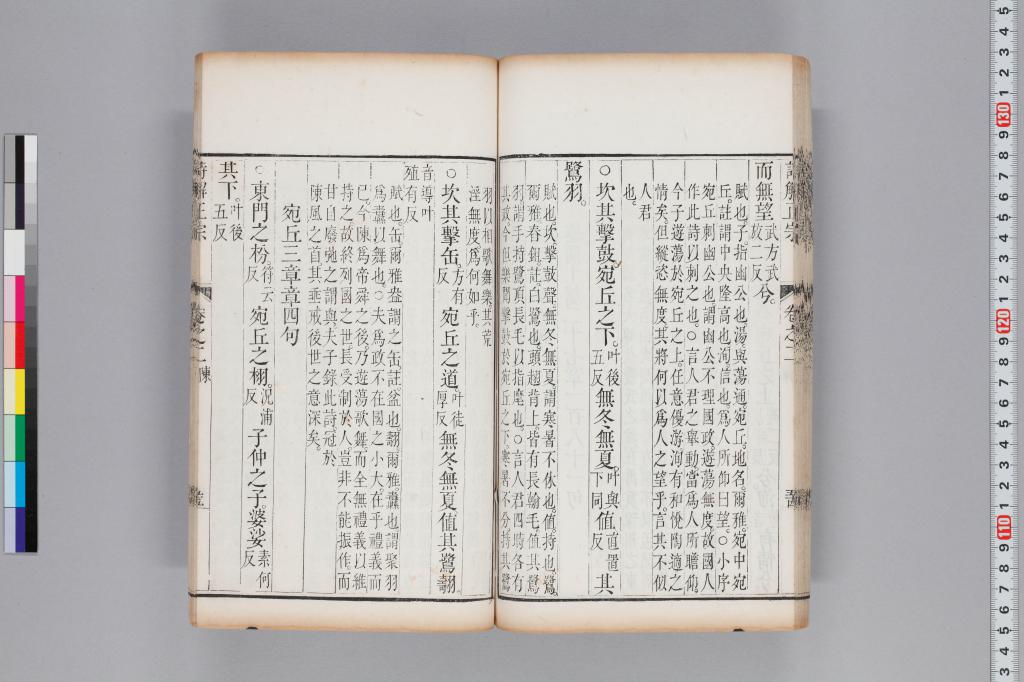 詩解正宗 卷之二
而無望武方武放二反兮。
賦也。子指幽公也。湯與蕩通。宛丘。地名。爾雅。宛中宛
丘。註謂中央隆高也。洵信也。為人所仰曰望。○小序
宛丘刺幽公也。謂幽公不理國政遊蕩無度。故國人
作此詩以刺之也。○言人君之舉動當為人所瞻仰。
今子遊蕩於宛丘之上。任意優游洵有和悅陶適之
情矣。但縱恣無度。其將何以為人之望乎。言其不似
人君
也。
○坎其擊鼓。宛丘之下。叶後五反無冬無夏叶與下同值直置反其
鷺羽。
賦也。坎擊鼓聲。無冬無夏。謂寒暑不休也。值持也。鷺
爾雅舂鉏。註白鷺也。頭翅背上皆有長翰毛。值其鷺
羽。謂手持鷺頂長毛以指麾也。○言人君四時各有
其政。今但樂聞擊鼓於宛丘之下。寒暑不分。持其鷺
羽。以相歌舞樂。其荒
淫無度為何如乎。
○坎其擊缶。方有反宛丘之道。叶徒厚反無冬無夏值其鷺翿。
音導叶
殖有反
賦也。缶爾雅盎謂之缶。註盆也。翿爾雅。纛也。謂聚羽
為纛以舞也。○夫為政不在國之小大。在乎禮義而
已。今陳為帝舜之後。乃遊蕩歌舞。而全無禮義以維
持之。故終列國之世。長受制於人。豈非不能振作。而
甘自廢弛之謂與。夫子錄此詩冠於
陳風之首。其垂戒後世之意深矣。
宛丘三章章四句
○東門之枌。符云反宛丘之栩。況浦反子仲之子。婆娑素何反
其下。叶後五反
詩解正宗 卷之二 陳